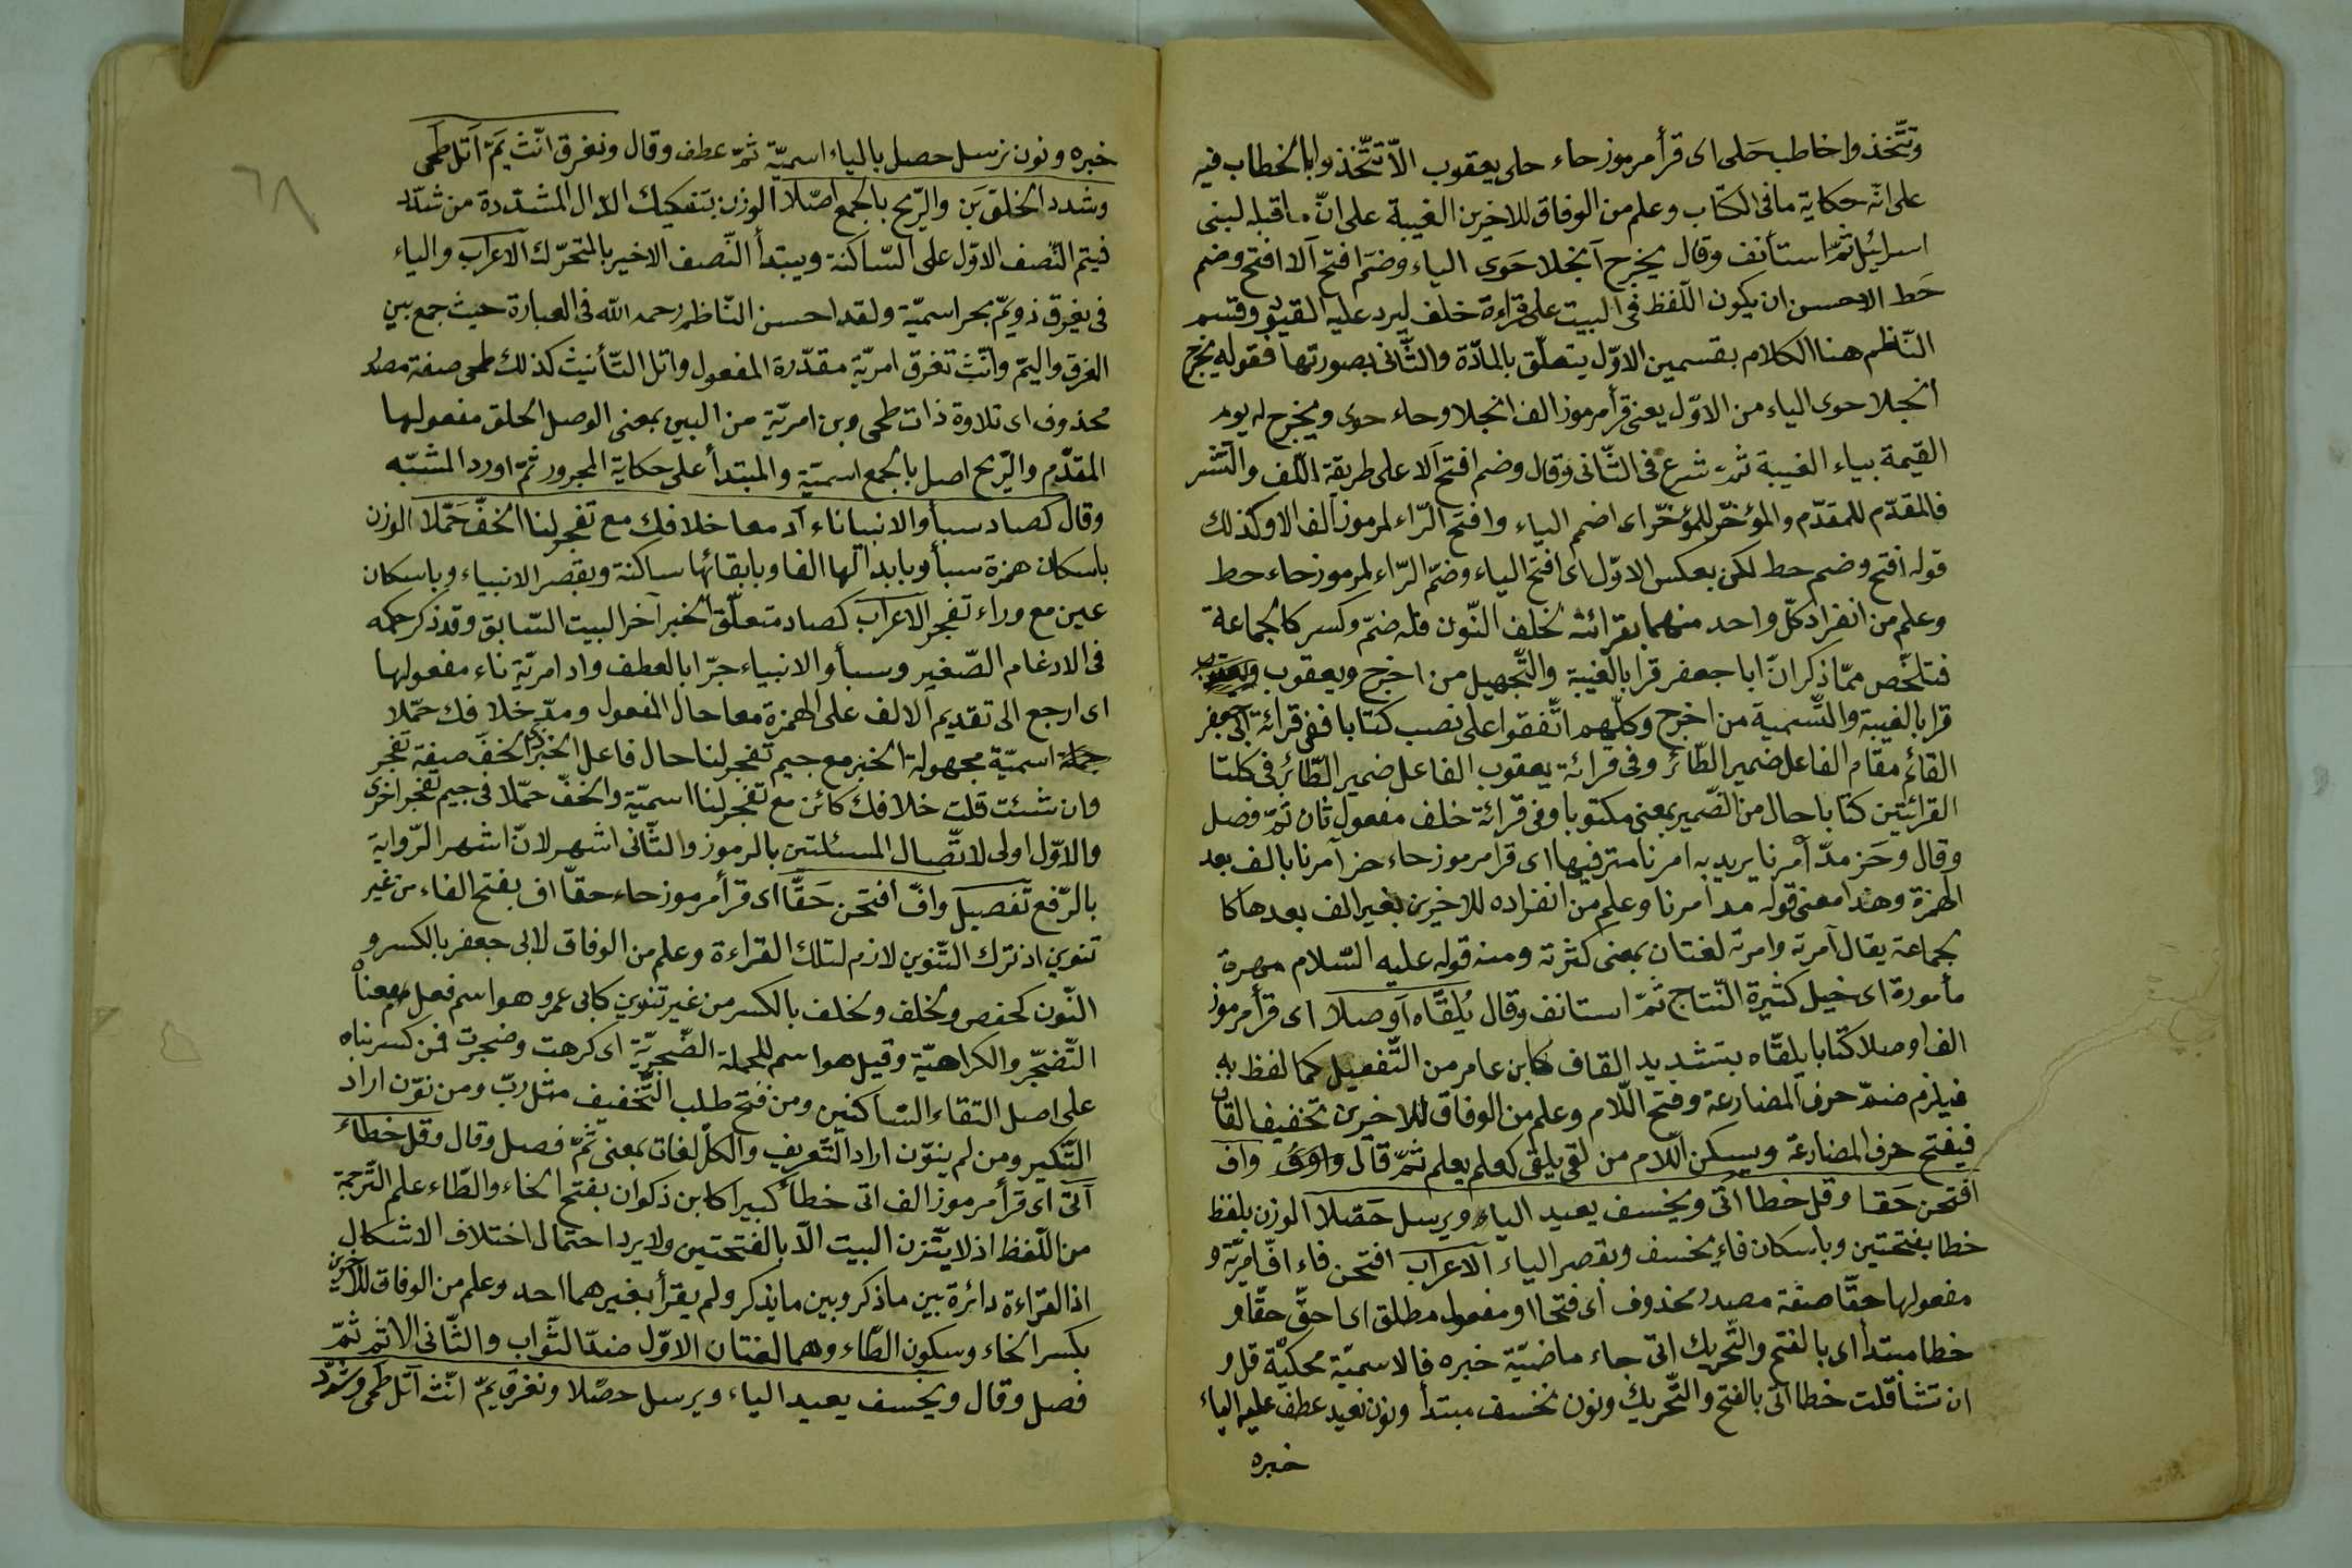 وتتّخذوا خاطب حَلى اى قرأ مرموز حاء حلى يعقوب الاّ تتّخذوا بالخطاب فيه
على انّه حكاية ما فى الكتاب وعلم من الوفاق للاخيرين الغيبة على انّ ما قبله لبنى
اسرائيل ثمّ استأنف وقال يخرج آنجلا حَوى الياء وضمّ افتح آلا افتح وضم
حَط الاحسن ان يكون اللّفظ فى البيت على قراءة خلف ليرد عليه القيود وقسم
النّاظم هنا الكلام بقسمين الاوّل يتعلّق بالمادّة والثّانى بصورتها فقوله يخرج
انجلا حوى الياء من الاوّل يعنى قرأ مرموز الف انجلا وحاء حوى ويخرج له يوم
القيمة بياء الغيبة ثمّ شرع فى الثّانى وقال وضم افتح آلا على طريقة اللّف والنّشر
فالمقدّم للمقدّم والمؤخّر للمؤخّر اى اضم الياء وافتح الرّاء لمرموز الف الا وكذلك
قوله افتح وضم حط لكن بعكس الاوّل اى افتح الياء وضمّ الرّاء لمرموز حاء حط
وعلم من انفراد كلّ واحد منهما بقرائته لخلف النّون فله ضمّ وكسر كالجماعة
فتلخّص ممّا ذكر انّ ابا جعفر قرا بالغيبة والتّجهيل من اخرج ويعقوب
قرا بالغيبة والتّسمية من اخرج وكلّهم اتّفقوا على نصب كتابا ففى قرائة ابى جعفر
القائم مقام الفاعل ضمير الطّائر وفى قرائة يعقوب الفاعل ضمير الطّائر فى كلتا
القرائتين كتابا حال من الضّمير بمعنى مكتوبا وفى قرائة خلف مفعول ثان ثمّ فصل
وقال وحَز مدّ آمرنا يريد به امرنا مترفيها اى قرا مرموز حاء حز آمرنا بالف بعد
الهمزة وهذا معنى قوله مد امرنا وعلم من انفراده للاخيرين بغير الف بعدها كا
لجماعة يقال آمرته وامرته لغتان بمعنى كثرته ومنه قوله عليه السّلام مهرة
مأمورة اى خيل كثيرة النّتاج ثمّ استانف وقال يُلقّاه آوصلا اى قرأ مرموز
الف اوصلا كتابا يلقّاه بتشديد القاف كابن عامر من التّفعيل كما لفظ به
فيلزم ضمّ حرف المضارعة وفتح اللّام وعلم من الوفاق للاخيرين تخفيف القاف
فيفتح حرف المضارعة ويسكن اللّام من لقى يلقى كعلم يعلم ثمّ قال واف
افتحن حَقا وقل خطا اتى ويخسف يعيد الياء ويرسل حَصّلا الوزن بلفظ
خطا بفتحتين وباسكان فاء يخسف وبقصر الياء الاعراب افتحن فاء افّ امريّة و
مفعولها حقّا صفة مصدر محذوف اى فتحا او مفعول مطلق اى احقّ حقّا و
خطا مبتدأ اى بالفتح والتّحريك اتى جاء ماضيّة خبره فالاسميّة محكيّة قل و
ان تشا قلت خطا اتى بالفتح والتّحريك ونون نخسف مبتدأ ونون نعيد عطف عليه الياء
خبره
٦٨
خبره ونون نرسل حصل بالياء اسميّة ثمّ عطف وقال ونغرق انّث يَمّ آتل طمى
وشدد الخلق بَن والرّيح بالجمع اصّلا الوزن بتفكيك الدّال المشدّدة من شدّد
فيتم النّصف الاوّل على السّاكنة ويبتدأ النّصف الاخير بالمتحرّك الاعراب والياء
فى يغرق ذو يمّ بحر اسميّة ولقد احسن النّاظم رحمه الله فى العبارة حيث جمع بين
الغرق واليمّ وانّث تغرق امريّة مقدّرة المفعول واتل التّأنيث كذلك طمى صفة مصدر
محذوف اى تلاوة ذات طمى وبن امريّة من البين بمعنى الوصل الخلق مفعولها
المقدّم والرّيح اصل بالجمع اسميّة والمبتدأ على حكاية المجرور ثمّ اورد المشبّه
وقال كصاد سبأ والانبياء ناء آد معا خلافك مع تفجر لنا الخفّ حَمّلا الوزن
باسكان همزة سبأ وبابدالها الفا وبابقائها ساكنة وبقصر الانبياء وباسكان
عين مع وراء تفجر الاعراب كصاد متعلّق الخبر آخر البيت السّابق وقد ذكر حكمه
فى الادغام الصّغير وسبأ والانبياء جرّا بالعطف واد امريّة ناء مفعولها
اى ارجع الى تقديم الالف على الهمزة معا حال المفعول ومدّ خلافك حمّلا
جملة اسميّة مجهولة الخبر مع جيم تفجر لنا حال فاعل الخبر الخفّ صيغة تفجر
وان شئت قلت خلافك كائن مع تفجر لنا اسميّة والخفّ حمّلا فى جيم تفجر اخرى
والاوّل اولى لاتّصال المسئلتين بالرموز والثّانى اشهر لانّ اشهر الرّواية
بالرّفع تفصيل وافّ افتحن حَقّا اى قرأ مرموز حاء حقّا اف بفتح الفاء من غير
تنوين اذ ترك التّنوين لازم لتلك القراءة وعلم من الوفاق لابى جعفر بالكسر و
النّون كحفص ولخلف بالكسر من غير تنوين كابى عمرو وهو اسم فعل معناه
التّضجّر والكراهيّة وقيل هو اسم للجملة الضّجريّة اى كرهت وضجرت فمن كسر بناه
على اصل التقاء السّاكنين ومن فتح طلب التّخفيف مثل ربّ ومن نوّن اراد
التّنكير ومن لم ينوّن اراد التّعريف والكلّ لغات بمعنى ثمّ فصل وقال وقل خطاء
آتى اى قرأ مرموز الف اتى خطأ كبيرا كابن ذكوان بفتح الخاء والطّاء علم التّرجمة
من اللّفظ اذ لا يتّزن البيت الّا بالفتحتين ولا يرد احتمال اختلاف الاشكال
اذ القراءة دائرة بين ما ذكر وبين ما يذكر ولم يقرأ بغيرهما احد وعلم من الوفاق للاخيرين
بكسر الخاء وسكون الطّاء وهما لغتان الاوّل ضدّ الثّواب والثّانى الاثم ثمّ
فصل وقال ويخسف يعيد الياء ويرسل حصّلا ونغرق يمّ انّث آتل طمى وشدّد